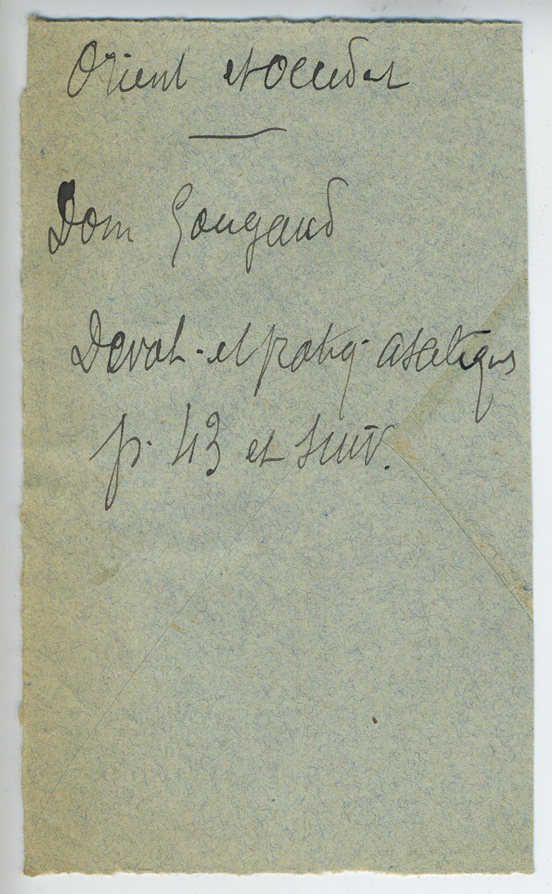 Orient et Occident
Dom Gougaud
Dévot. et pratiq. ascétiques
p. 43 et suiv.